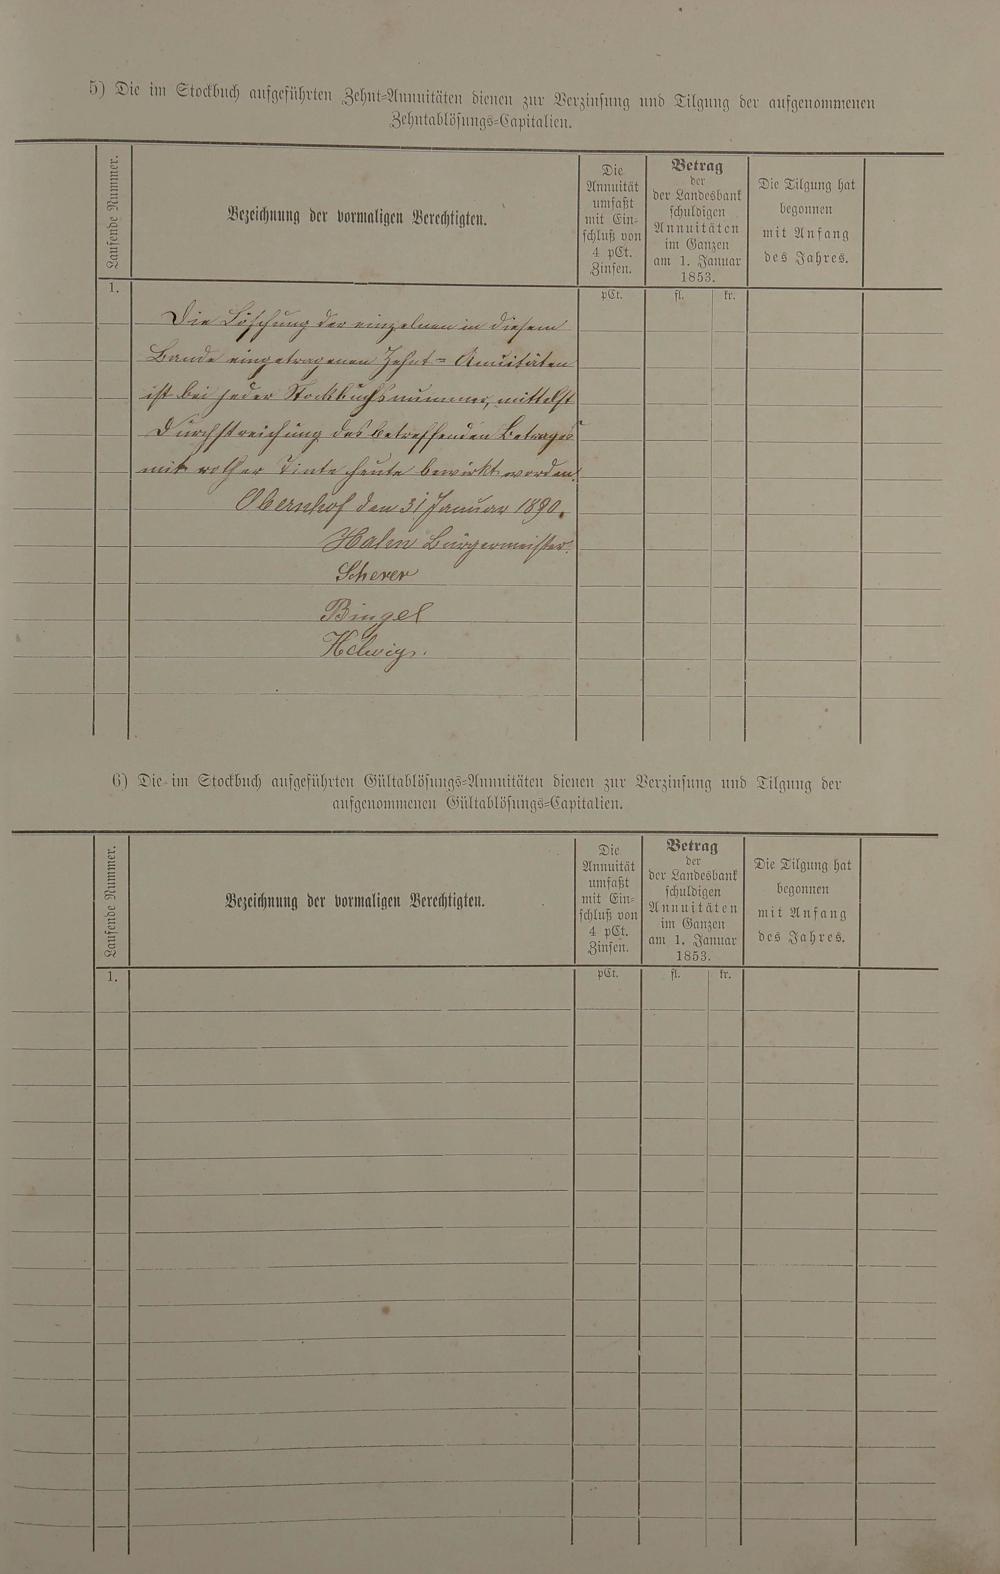 5) Die im Stockbuch aufgeführten Zehnt-Annuitäten dienen zur Verzinsung und Tilgung der aufgenommenen
Zehntablösungs-Capitalien.
Laufende Nummer.
Bezeichnung der vormaligen Berechtigten.
Die
Annuität
umfaßt
mit Ein-
schluß von
4 pCt.
Zinsen.
Betrag
der
der Landesbank
schuldigen
Annuitäten
im Ganzen
am 1. Januar
1853.
Die Tilgung hat
begonnen
mit Anfang
des Jahres.
1.
pCt.
fl.
kr.
Die Löschung der einzelnen in diesem
Bande eingetragenen Zehnt-Annuitäten
ist bei jeder Stockbuchsnummer, mittelst
Durchstreichung des betreffenden Betrages
mit rother Tinte heute bewirkt worden.
Obernhof den 31 Januar 1890.
Halm Bürgermeister.
Scherer
Bingel
Helwig.
6) Die im Stockbuch aufgeführten Gültablösungs-Annuitäten dienen zur Verzinsung und Tilgung der
aufgenommenen Gültablösungs-Capitalien.
Laufende Nummer.
Bezeichnung der vormaligen Berechtigten.
Die
Annuität
umfaßt
mit Ein-
schluß von
4 pCt.
Zinsen.
Betrag
der
der Landesbank
schuldigen
Annuitäten
im Ganzen
am 1. Januar
1853.
Die Tilgung hat
begonnen
mit Anfang
des Jahres.
1.
pCt.
fl.
kr.